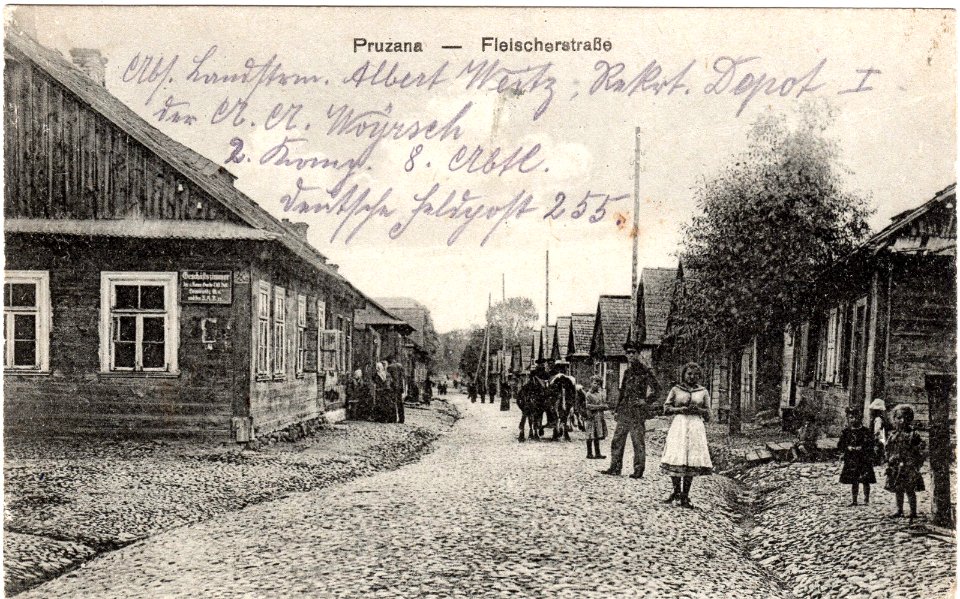 Pruzana — Fleischerstraße
Abs. Landstrm. Albert Wertz, Rekrt. Depot I
der A. A. Woyrsch
2. Komp. 8. Abtl.
deutsche Feldpost 255.
Geschäftszimmer